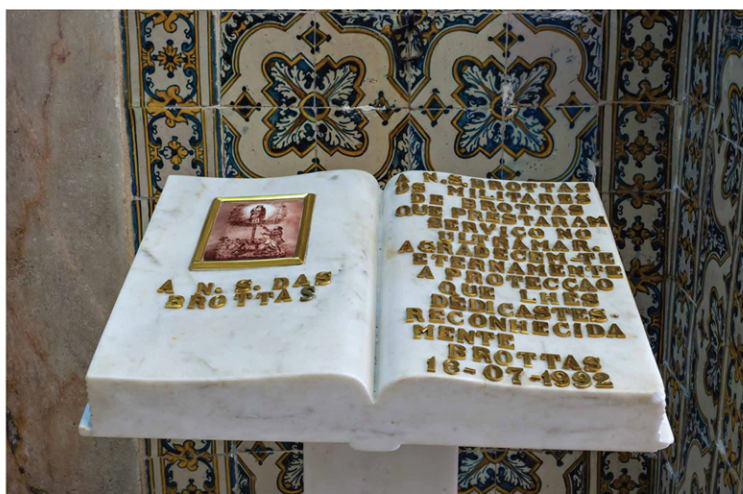 A N. S. DAS
BROTTAS
A N. S. BROTTAS
OS MILITARES
DE BROTAS
QUE PRESTARAM
SERVIÇO NO
ULTRAMAR.
AGRADECEM-TE
ETERNAMENTE
A PROTECÇAO
QUE LHES
DEDICASTES-
RECONHECIDA
MENTE
BROTTAS
16-07-1992